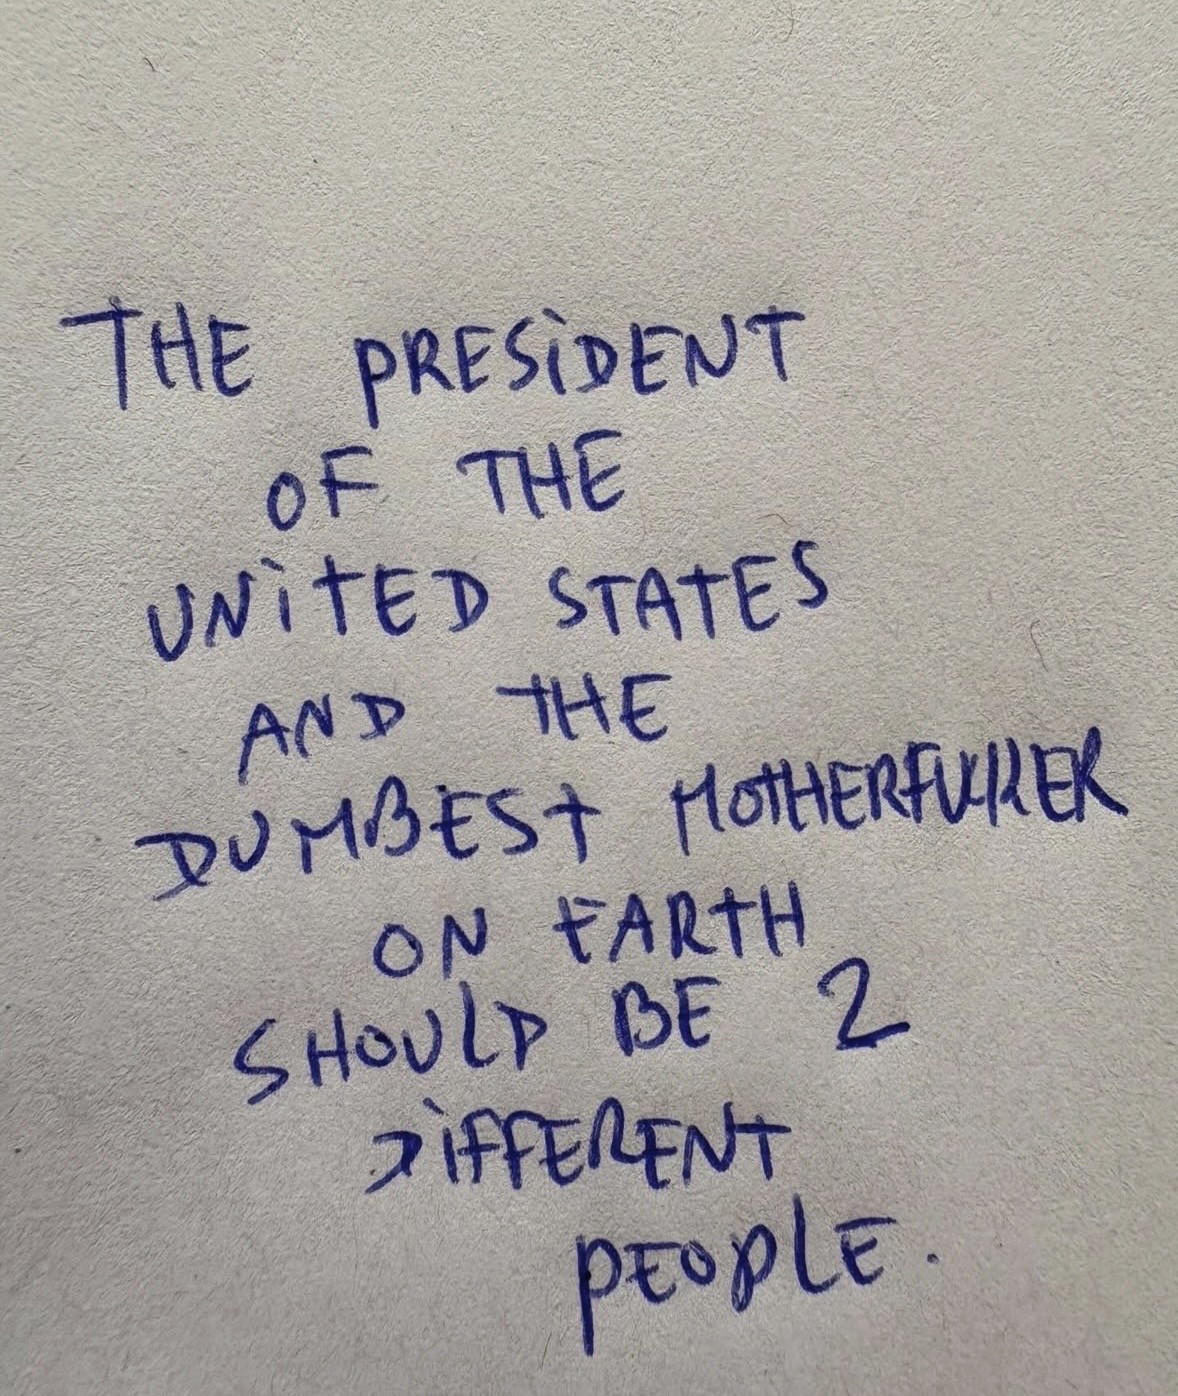 THE PRESiDENT
OF THE
UNiTED STATES
AND THE
DUMBEST MOTHERFUCKER
ON EARTH
SHOULD BE 2
DiFFERENT
PEOPLE.